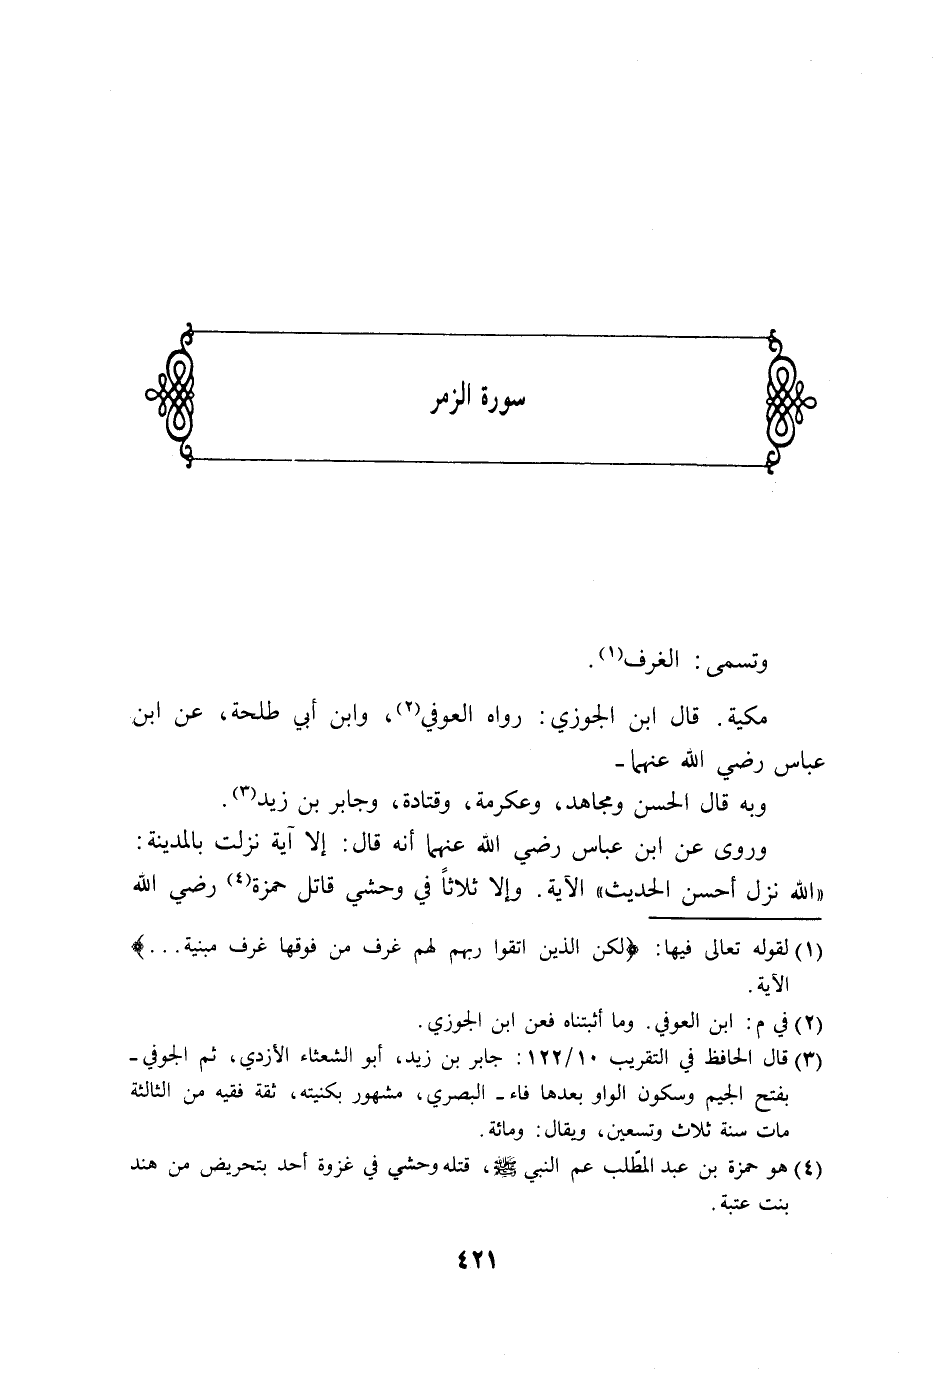 سورة الزمر
وتسمى: الغرف(١).
مكية. قال ابن الجوزي: رواه العوفي(٢)، وابن أبي طلحة، عن ابن
عباس رضي الله عنهما ـ
وبه قال الحسن ومجاهد، وعكرمة، وقتادة، وجابر بن زيد(٣).
وروى عن ابن عباس رضي الله عنهما أنه قال: إلا آية نزلت بالمدينة:
«الله نزل أحسن الحديث» الآية. وإلا ثلاثاً في وحشي قاتل حمزة(٤) رضي الله
(١) لقوله تعالى فيها: ﴿لكن الذين اتقوا ربهم لهم غرف من فوقها غرف مبنية...﴾
الآية.
(٢) في م: ابن العوفي. وما أثبتناه فعن ابن الجوزي.
(٣) قال الحافظ في التقريب ١٢٢/١٠: جابر بن زيد، أبو الشعثاء الأزدي، ثم الجوفي ـ
بفتح الجيم وسكون الواو بعدها فاء ـ البصري، مشهور بكنيته، ثقة فقيه من الثالثة
مات سنة ثلاث وتسعين، ويقال: ومائة.
(٤) هو حمزة بن عبد المطّلب عم النبي ﷺ، قتله وحشي في غزوة أحد بتحريض من هند
بنت عتبة.
٤٢١